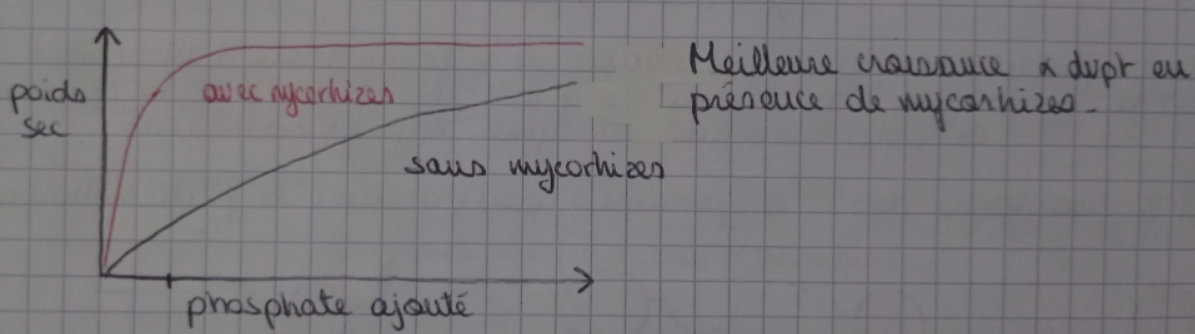 poids
sec
avec mycorhizes
sans mycorhizes
phosphate ajouté
Meilleure croissance & dvpt en
présence de mycorhizes.